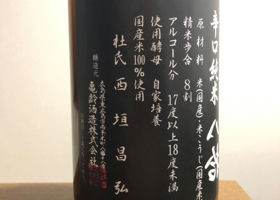 辛口純米
原材料 米(国産)・米こうじ(国産米)
精米歩合 8割
アルコール分 17度以上18度未満
使用酵母 自家培養
国産米100%使用
杜氏 西垣昌弘
醸造元
亀齢酒造株式会社